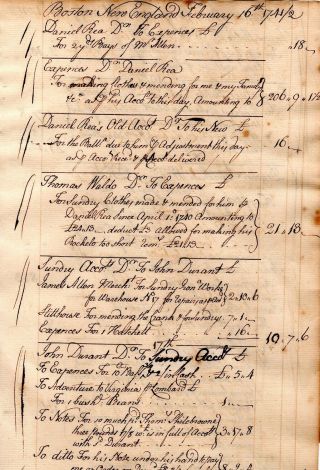 Boston New England February 16th 1741/2
Daniel Rea Dr To Expences £
For 2 yds Bays of Mr Allen .. 18 ..
Expences Dr Daniel Rea
For making Clothes & mending for me & my Family
&c as p his Accot to this day, Amounting to £ 206 .. 9 .. 1½
Daniel Rea's Old Accot Dr To his New £
For the Ballce due to him p Adjustment this day 16 ..
and Accos delivered
Thomas Waldo Dr To Expences £
For Sundry Clothes made & mended for him p
Daniel Rea Since April 1st 1740 Amounting to
deduct allowed for making his 21 .. 13 ..
too short
Sundry Accots Dr To John Durant £
James Allen Mercht for Sundry Iron Works
for Warehouse No 7 for repair 2 .. 10 .. 6
Stillhouse For mending the & Sundry .. 7 .. 1
Expences For 1 .. 16 ..
10 .. 7 .. 6
17th
John Durant Dr To Sundry Accots
To Expences For 10 & in Cash £ .. 5 .. 4
To Adventure to Virginia p Lombard £
For 1 bushl Beans
To Notes For so much pd Thomas
in full of Accot 3 .. 17 .. 8
with Durant
To ditto For his Note under his hand to pay